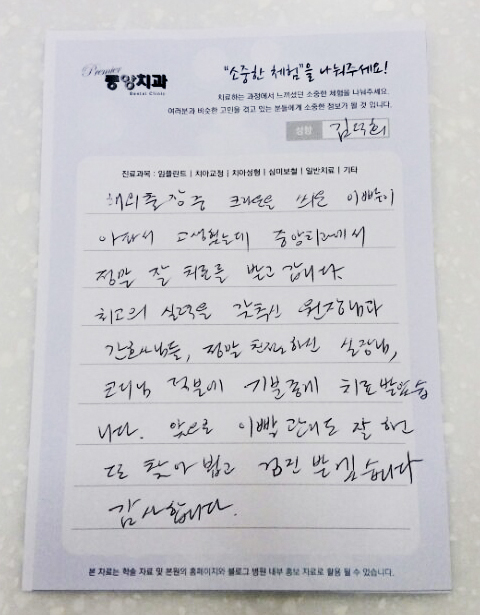 Premier
중앙치과
Dental Clinic
"소중한 체험"을 나눠주세요!
치료하는 과정에서 느끼셨던 소중한 체험을 나눠주세요.
여러분과 비슷한 고민을 겪고 있는 분들에게 소중한 정보가 될 것 입니다.
성함
진료과목 : 임플란트 | 치아교정 | 치아성형 | 심미보철 | 일반치료 | 기타
해외출장중 크라운을 씌운 이빨이
아파서 고생했는데 중앙치과에서
정말 잘 치료를 받고 갑니다.
최고의 실력을 갖추신 원장님과
간호사님들, 정말 친절하신 실장님,
코디님 덕분에 기분좋게 치료받았습
니다. 앞으로 이빨 관리도 잘 하고
또 찾아뵙고 검진 받겠습니다
감사합니다.
본 자료는 학술 자료 및 본원의 홈페이지와 블로그 병원 내부 홍보 자료로 활용 될 수 있습니다.